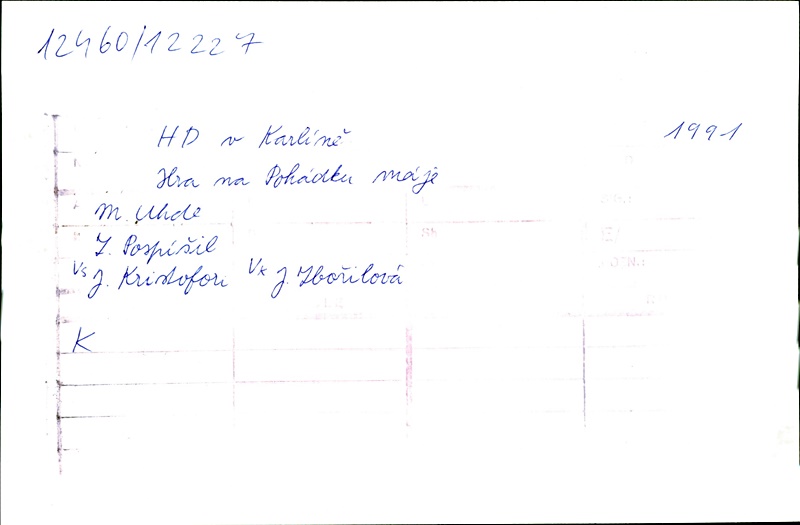 12460/12227
HD v Karlíně 1991
Hra na Pohádku máje
M. Uhde
Z. Pospíšil
Vs J. Kristofori Vk J. Zbořilová
K